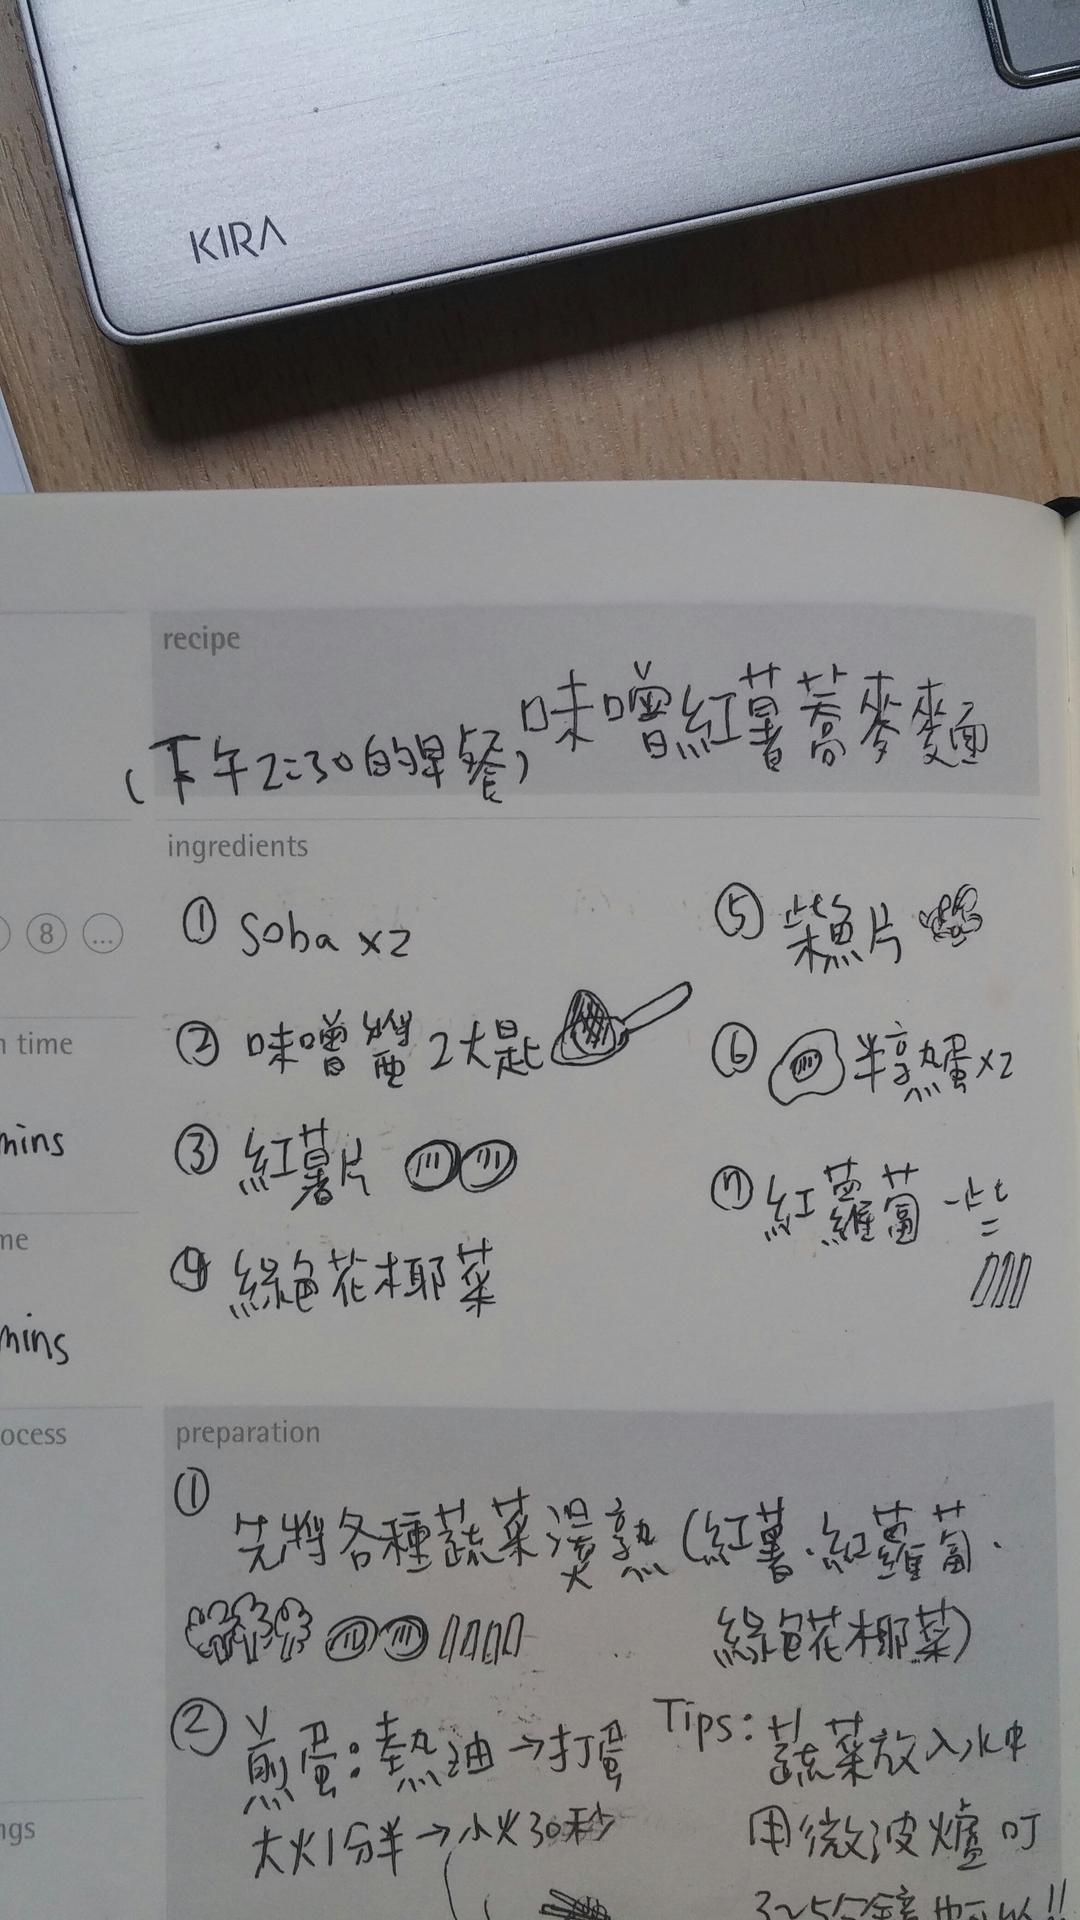 KIRA
recipe
味噌紅薯蕎麥麵
(下午2:30的早餐)
ingredients
① Soba x2
② 味噌醬 2大匙
③ 紅薯片
④ 綠色花椰菜
⑤ 柴魚片
⑥ 半熟蛋 x2
⑦ 紅蘿蔔 一些
8 ...
n time
mins
me
mins
ocess
ngs
preparation
①
先將各種蔬菜燙熟(紅薯、紅蘿蔔、
綠色花椰菜)
② 煎蛋:熱油→打蛋
大火1分半→小火30秒
Tips: 蔬菜放入水中
用微波爐叮
3~5分鐘也可以!!